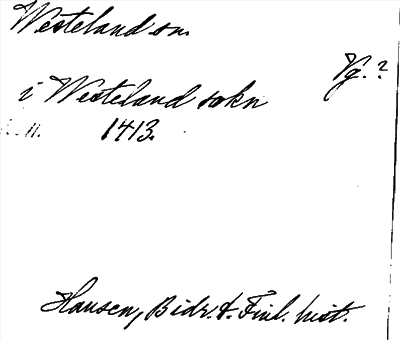 Westeland sn.
Vg.?
i Westeland sokn
1413.
Hausen, Bidr. t. Finl. hist.